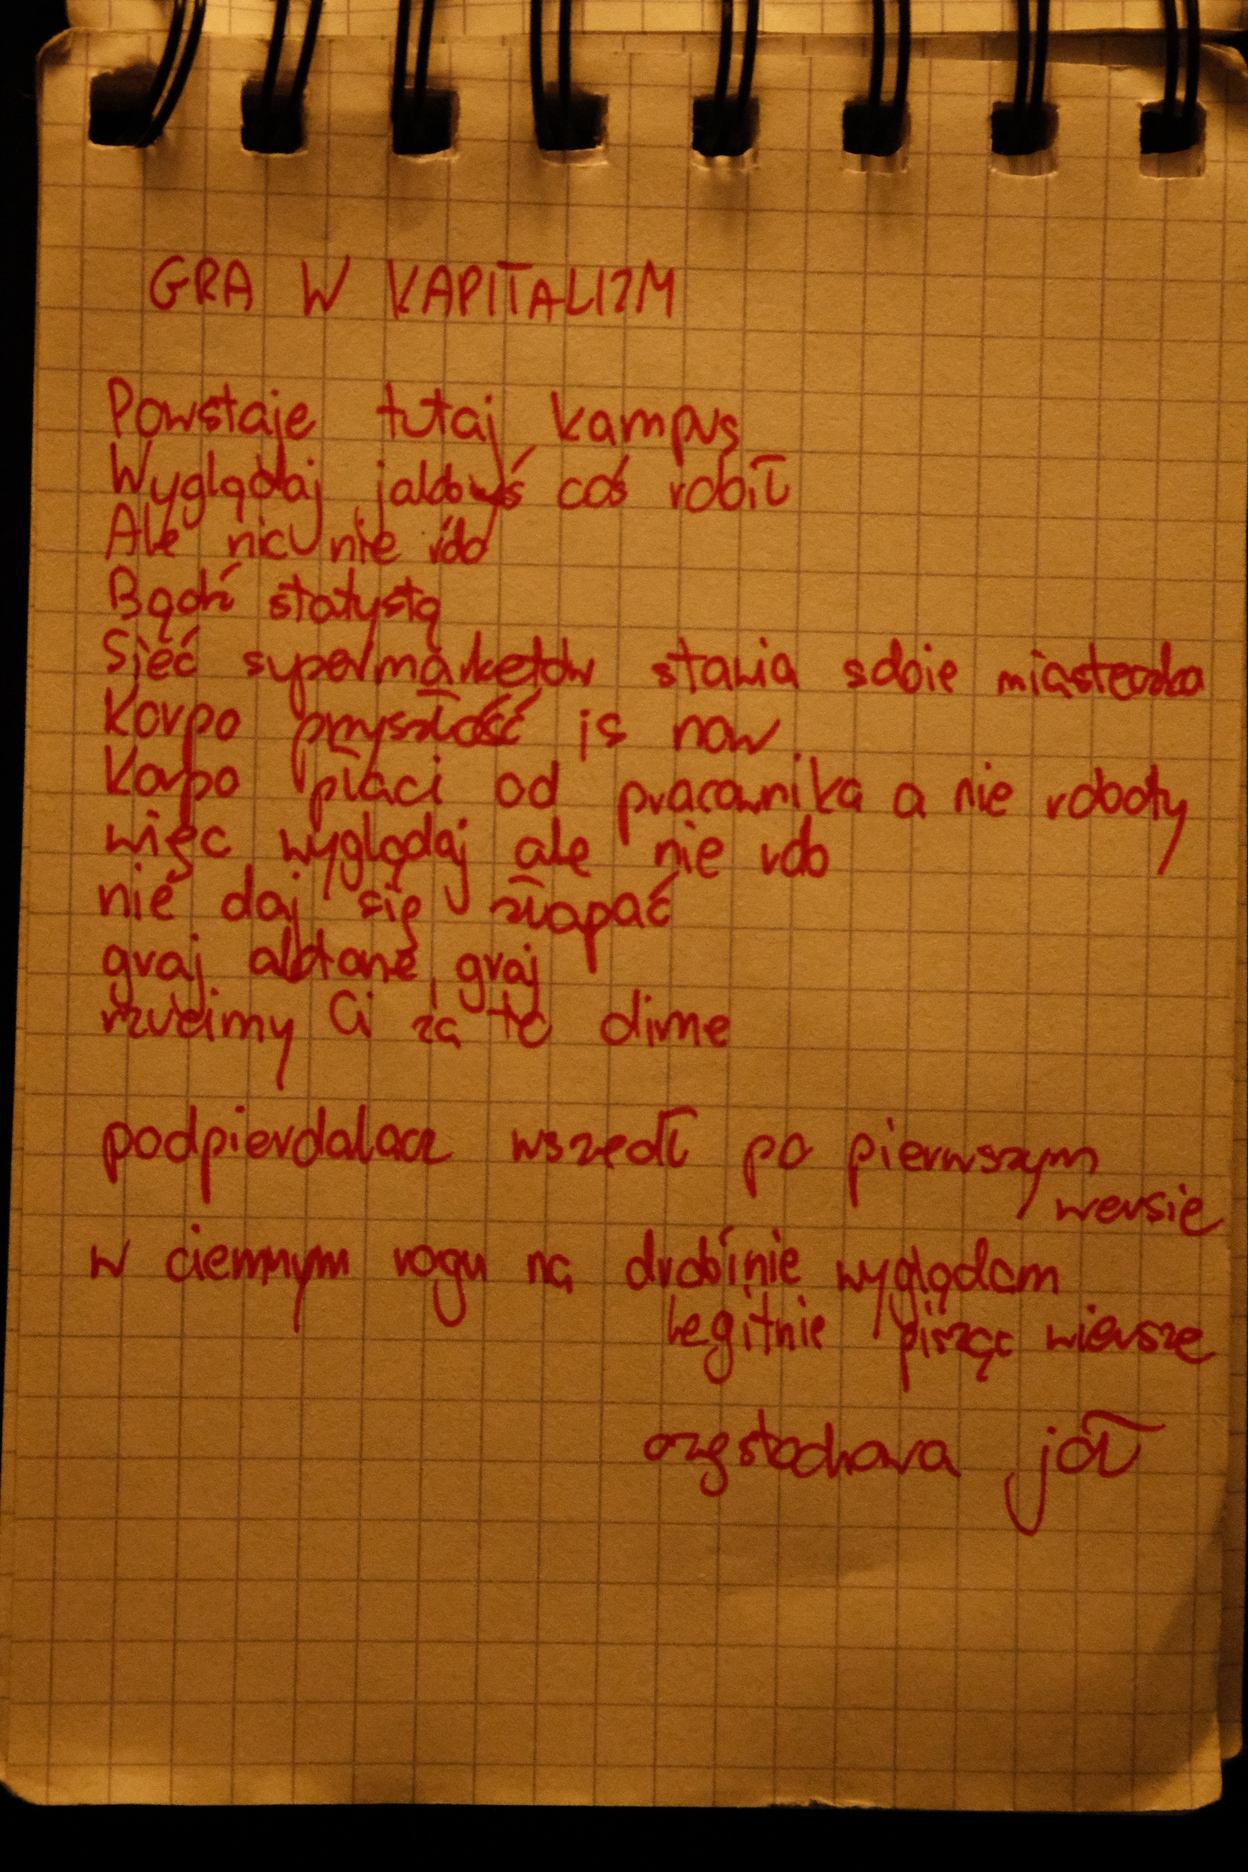 GRA W KAPITALIZM
Powstaje tutaj kampus
Wyglądaj jakbyś coś robił
Ale nic nie rób
Bądź statystą
Sieć supermarketów stawia sobie miasteczko
Korpo przyszłość is now
Korpo płaci od pracownika a nie roboty
więc wyglądaj ale nie rób
nie daj się złapać
graj aktorze, graj
rzucimy Ci za to dime
podpierdalacz wszedł po pierwszym
wersie
w ciemnym rogu na drabinie wyglądam
legitnie pisząc wiersze
częstochowa joł